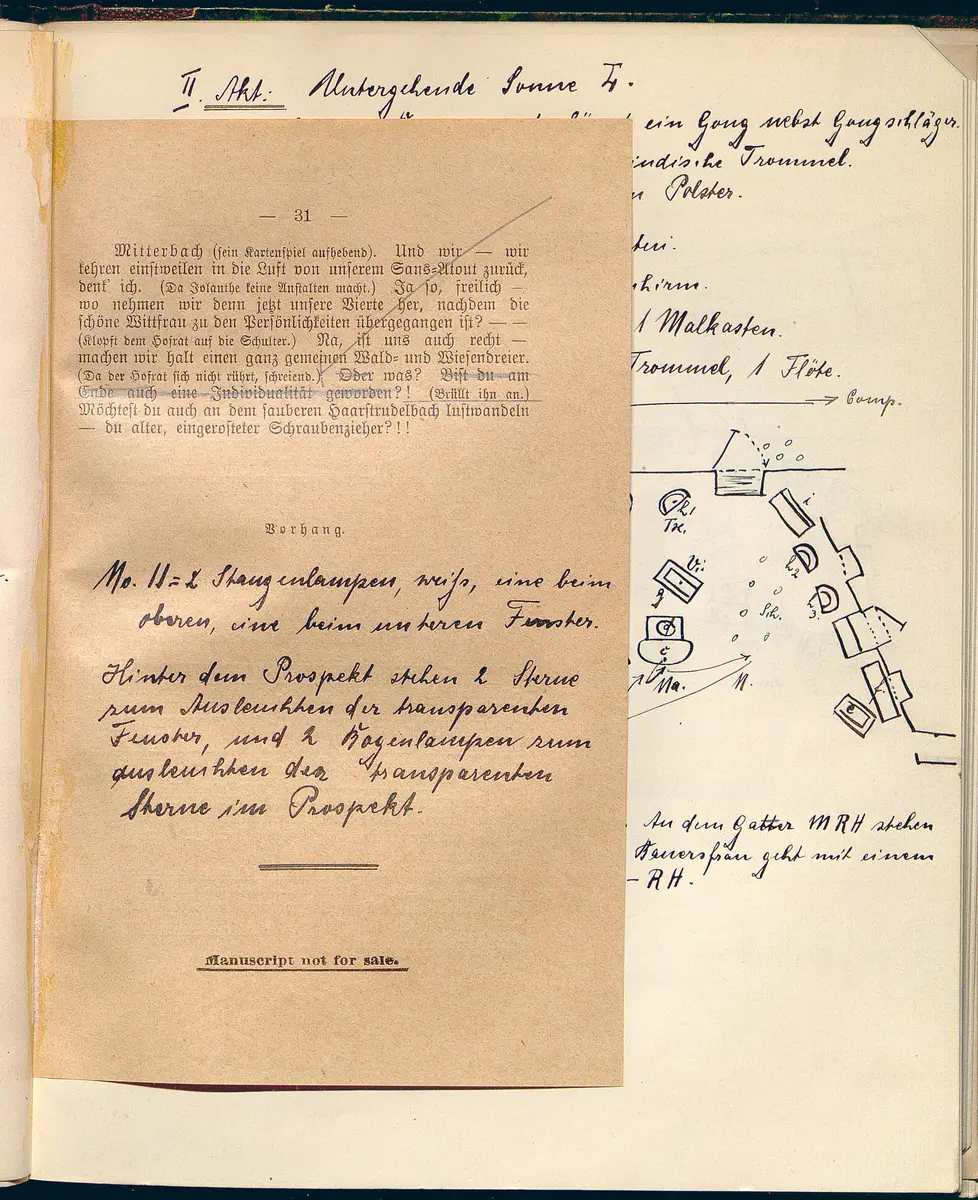 II. Akt: Untergehende Sonne
ein Gong nebst Gongschläger.
indische Trommel.
Polster.
1 Malkasten.
Trommel, 1 Flöte.
Comp.
— 31 —
Mitterbach (sein Kartenspiel aufhebend). Und wir — wir
kehren einstweilen in die Luft von unserem Sans-Atout zurück,
denk' ich. (Da Jolanthe keine Anstalten macht.) Ja so, freilich —
wo nehmen wir denn jetzt unsere Vierte her, nachdem die
schöne Wittfrau zu den Persönlichkeiten übergegangen ist? — —
(Klopft dem Hofrat auf die Schulter.) Na, ist uns auch recht —
machen wir halt einen ganz gemeinen Wald- und Wiesendreier.
(Da der Hofrat sich nicht rührt, schreiend.) Oder was? Bist du am
Ende auch eine Individualität geworden?! (Brüllt ihn an.)
Möchtest du auch an dem sauberen Haarstrudelbach lustwandeln
— du alter, eingerosteter Schraubenzieher?!!
Vorhang.
No. 11 = 2 Stangenlampen, weiß, eine beim
oberen, eine beim unteren Fenster.
Hinter dem Prospekt stehen 2 Sterne
zum Ausleuchten der transparenten
Fenster, und 2 Bogenlampen zum
ausleuchten der transparenten
Sterne im Prospekt.
Manuscript not for sale.
i
Vi.
Sch.
Na.
N.
An dem Gatter MRH stehen
Bauersfrau geht mit einem
– RH.